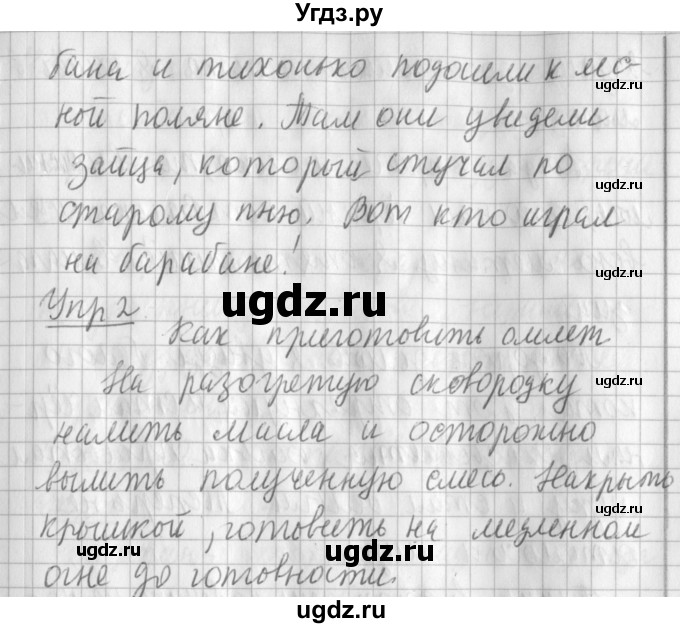 Угдз.ру
бана и тихонько подошли к лес-
ной поляне. Там они увидели
зайца, который стучал по
старому пню. Вот кто играл
на барабане!
Упр 2
ugdz.ru
Как приготовить омлет
На разогретую сковородку
налить масла и осторожно
вылить полученную смесь. Накрыть
крышкой, готовить на медленном
огне до готовности.
ugdz.ru